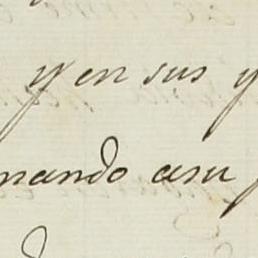 y en sus y
nando asu